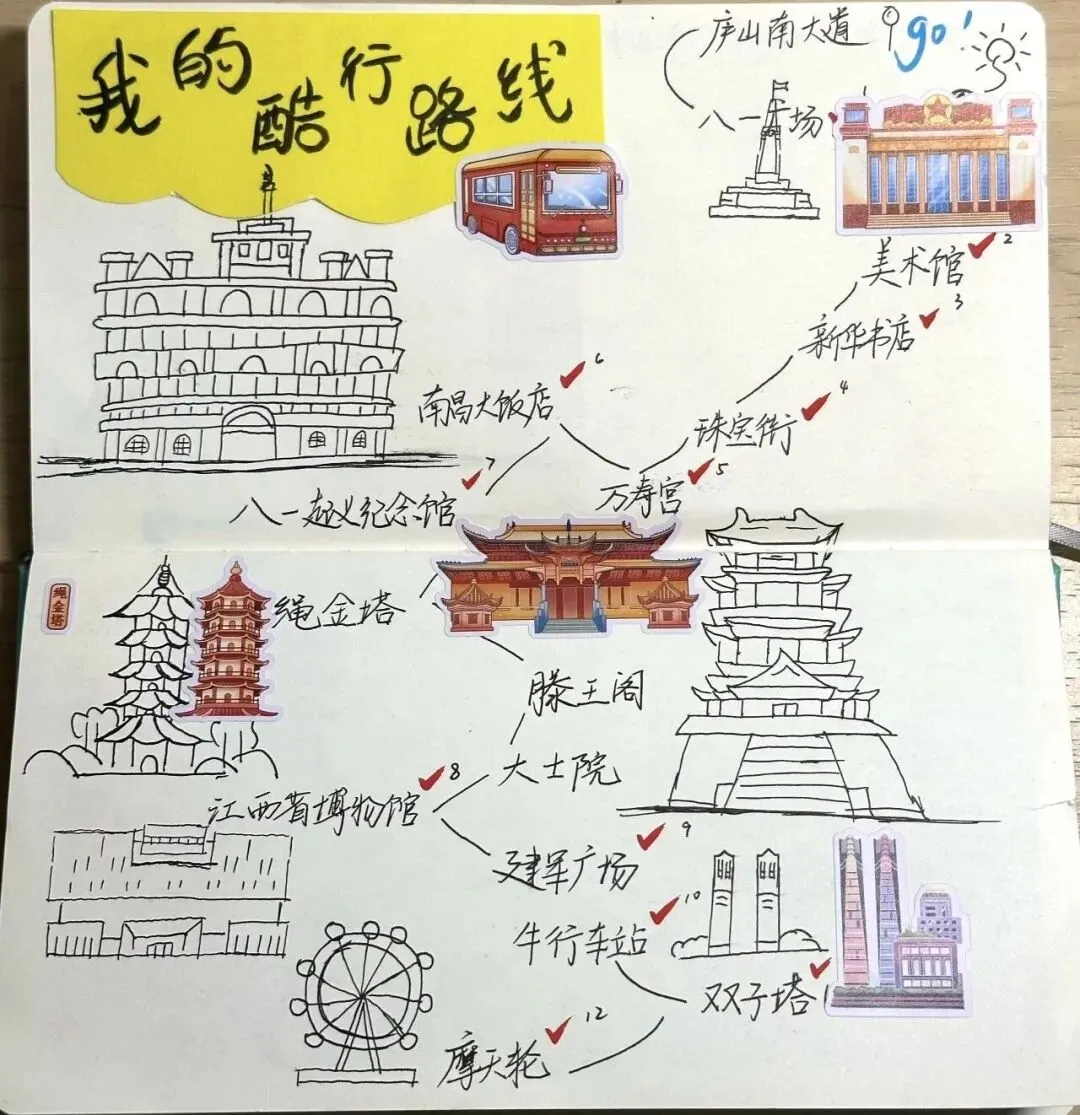 我的酷行路线
庐山南大道 go!
八一广场 1
美术馆 2
新华书店 3
珠宝街 4
万寿宫 5
南昌大饭店 6
八一起义纪念馆 7
绳金塔
绳金塔
滕王阁
大士院
江西省博物馆 8
建军广场 9
牛行车站 10
双子塔
摩天轮 12